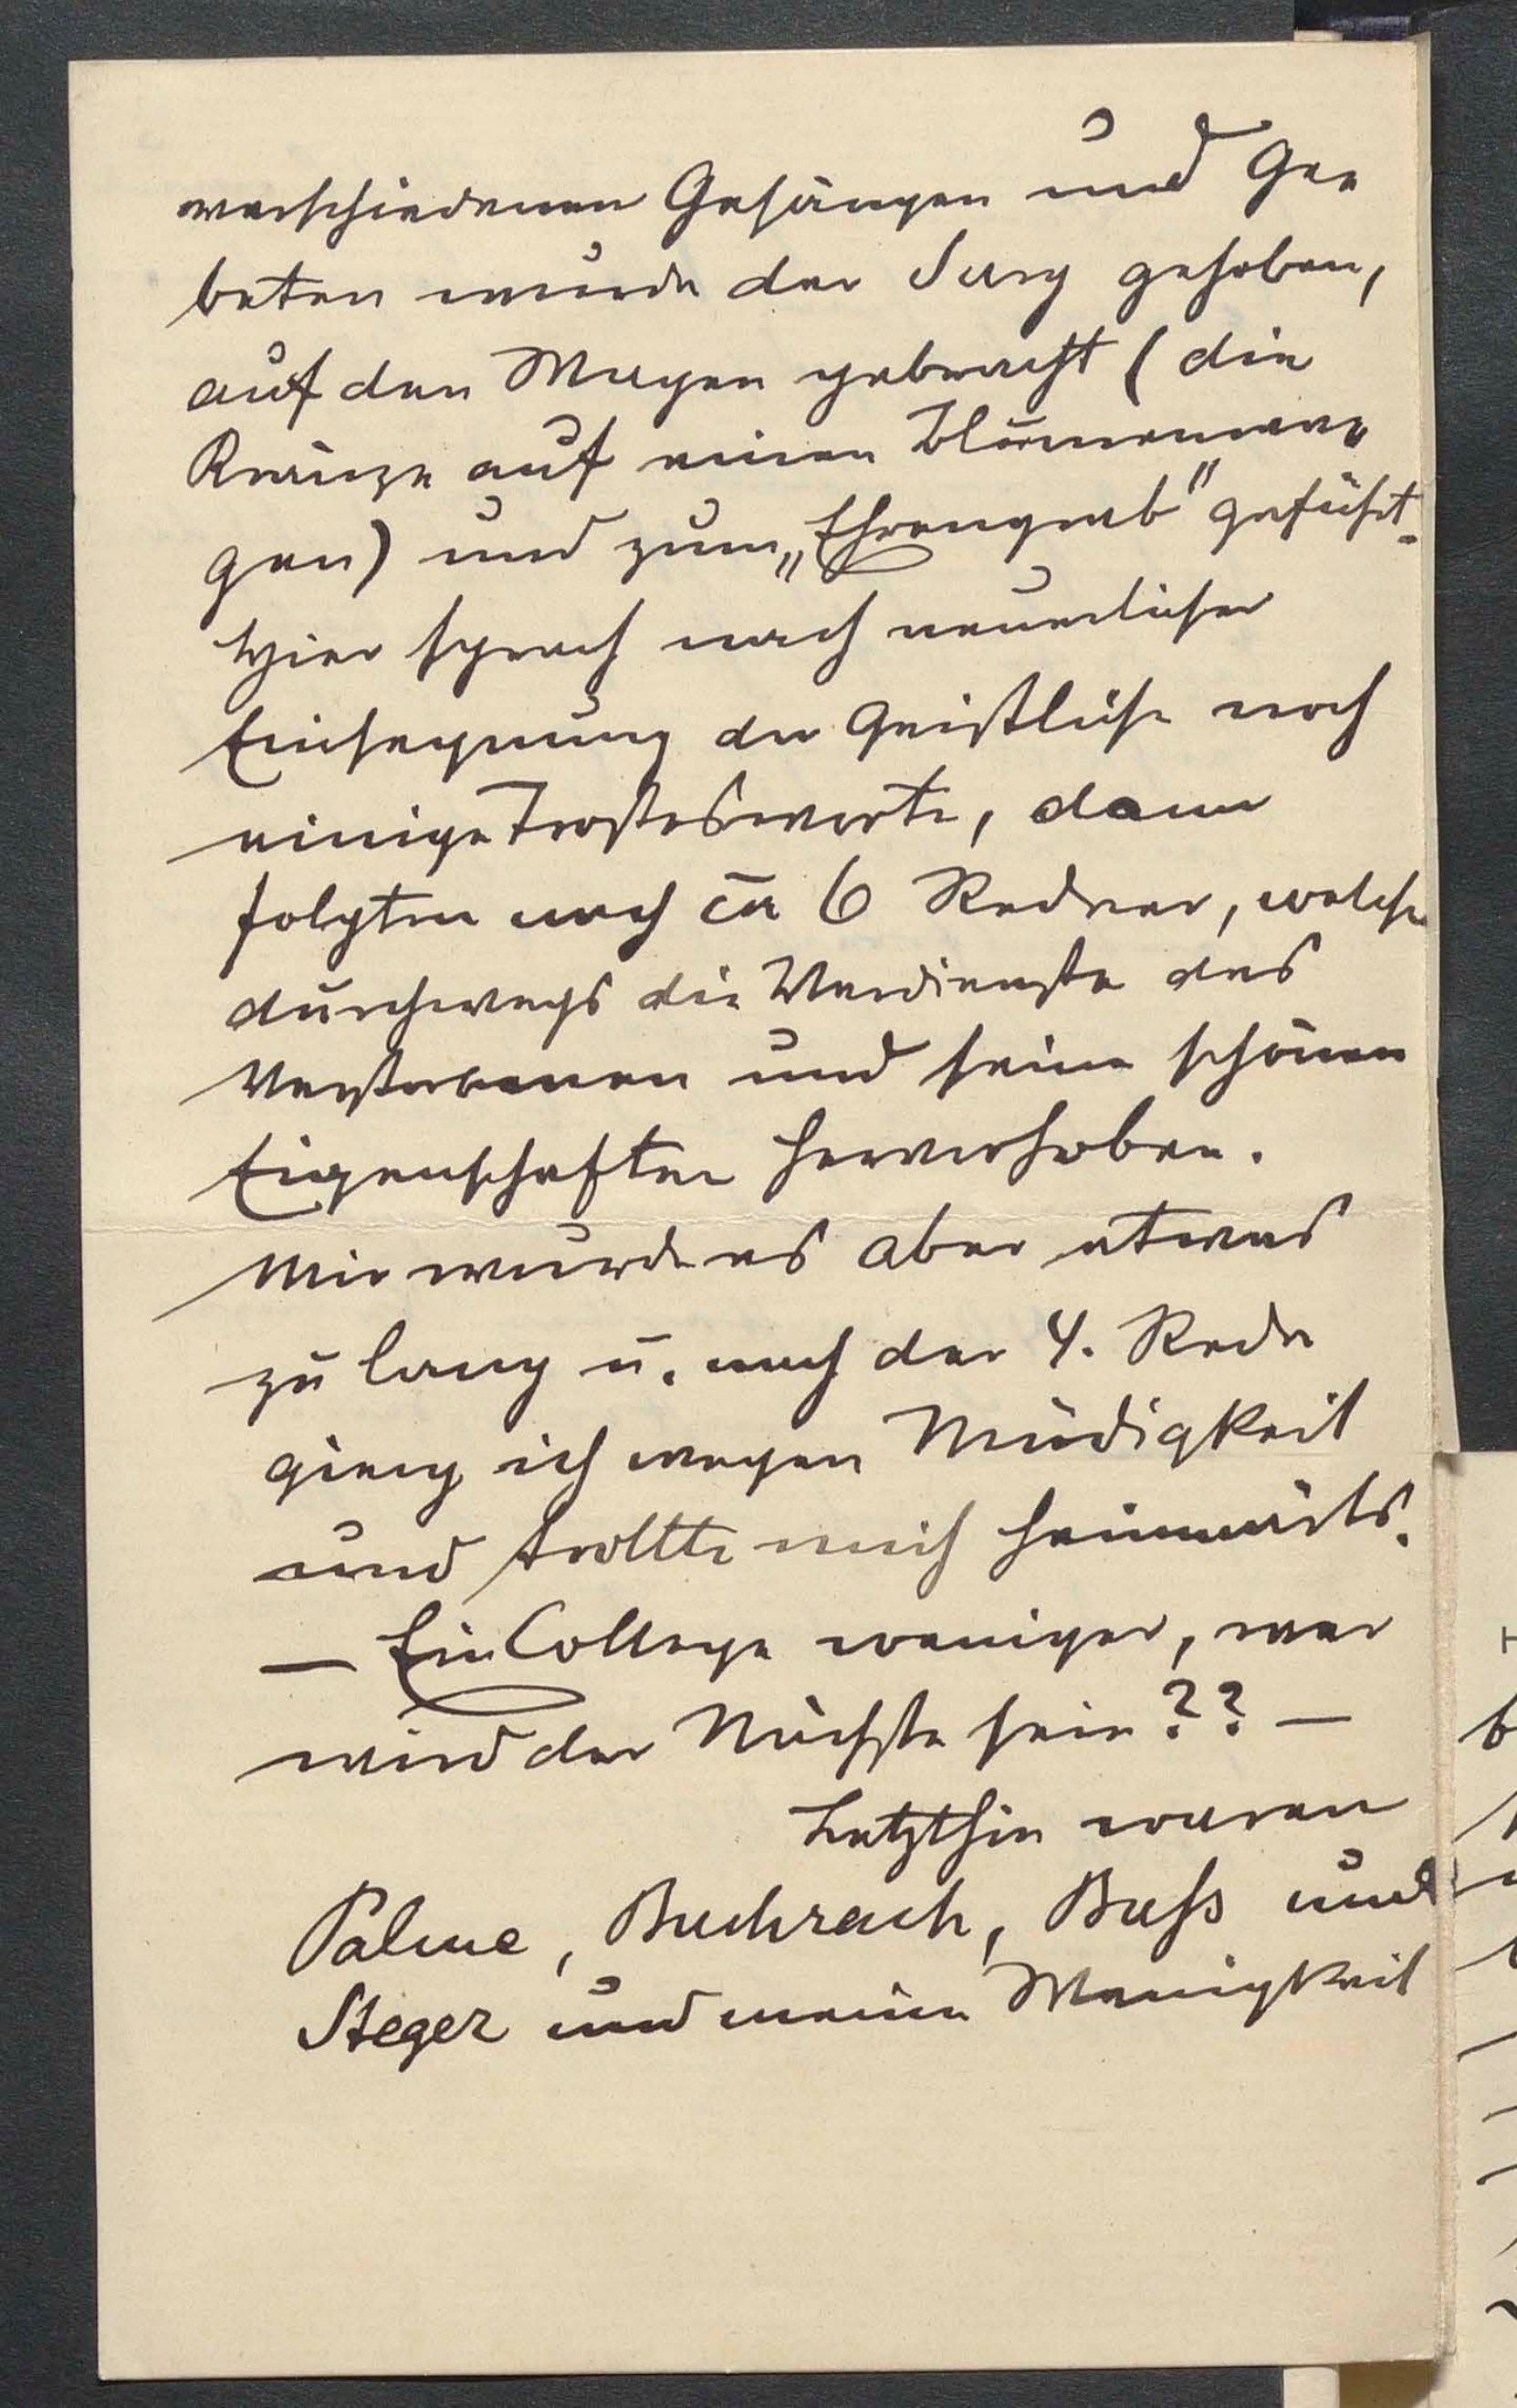 verschiedenen Gesängen und Ge-
beten wurde der Sarg gehoben,
auf den Wagen gebracht (die
Kränze auf einen Blumenwa-
gen) und zum „Ehrengrab" geführt.
Hier sprach nach neuerlicher
Einsegnung der Geistliche noch
einige Trostesworte, dann
folgten noch ca 6 Redner, welche
durchwegs die Verdienste des
Verstorbenen und seine schönen
Eigenschaften hervorhoben.
Mir wurde es aber etwas
zu lang u. nach der 4. Rede
gieng ich wegen Müdigkeit
und trollte mich heimwärts.
— Ein College weniger, wer
wird der Nächste sein?? —
Letzthin waren
Palme, Buchrach, Bass und
Steger und meine Wenigkeit